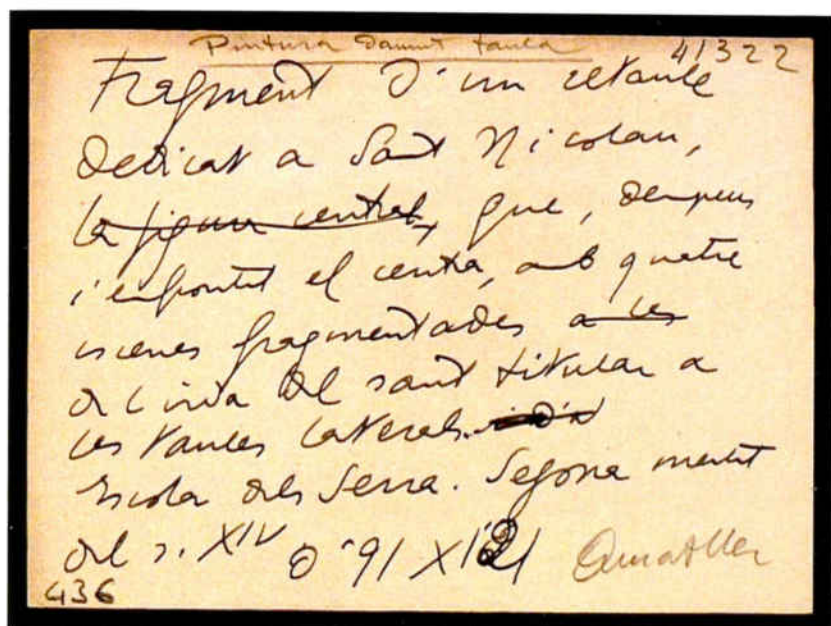 Pintura damunt taula 41322
Fragment d'un retaule
dedicat a Sant Nicolau,
la figura central, que, dempeus
i enfrontat el centra, amb quatre
escenes fragmentades a les
de la vida del sant titular a
les taules laterals.
Escola dels Serra. Segona meitat
del s. XIV 0'91 X 1'21 Amatller
436